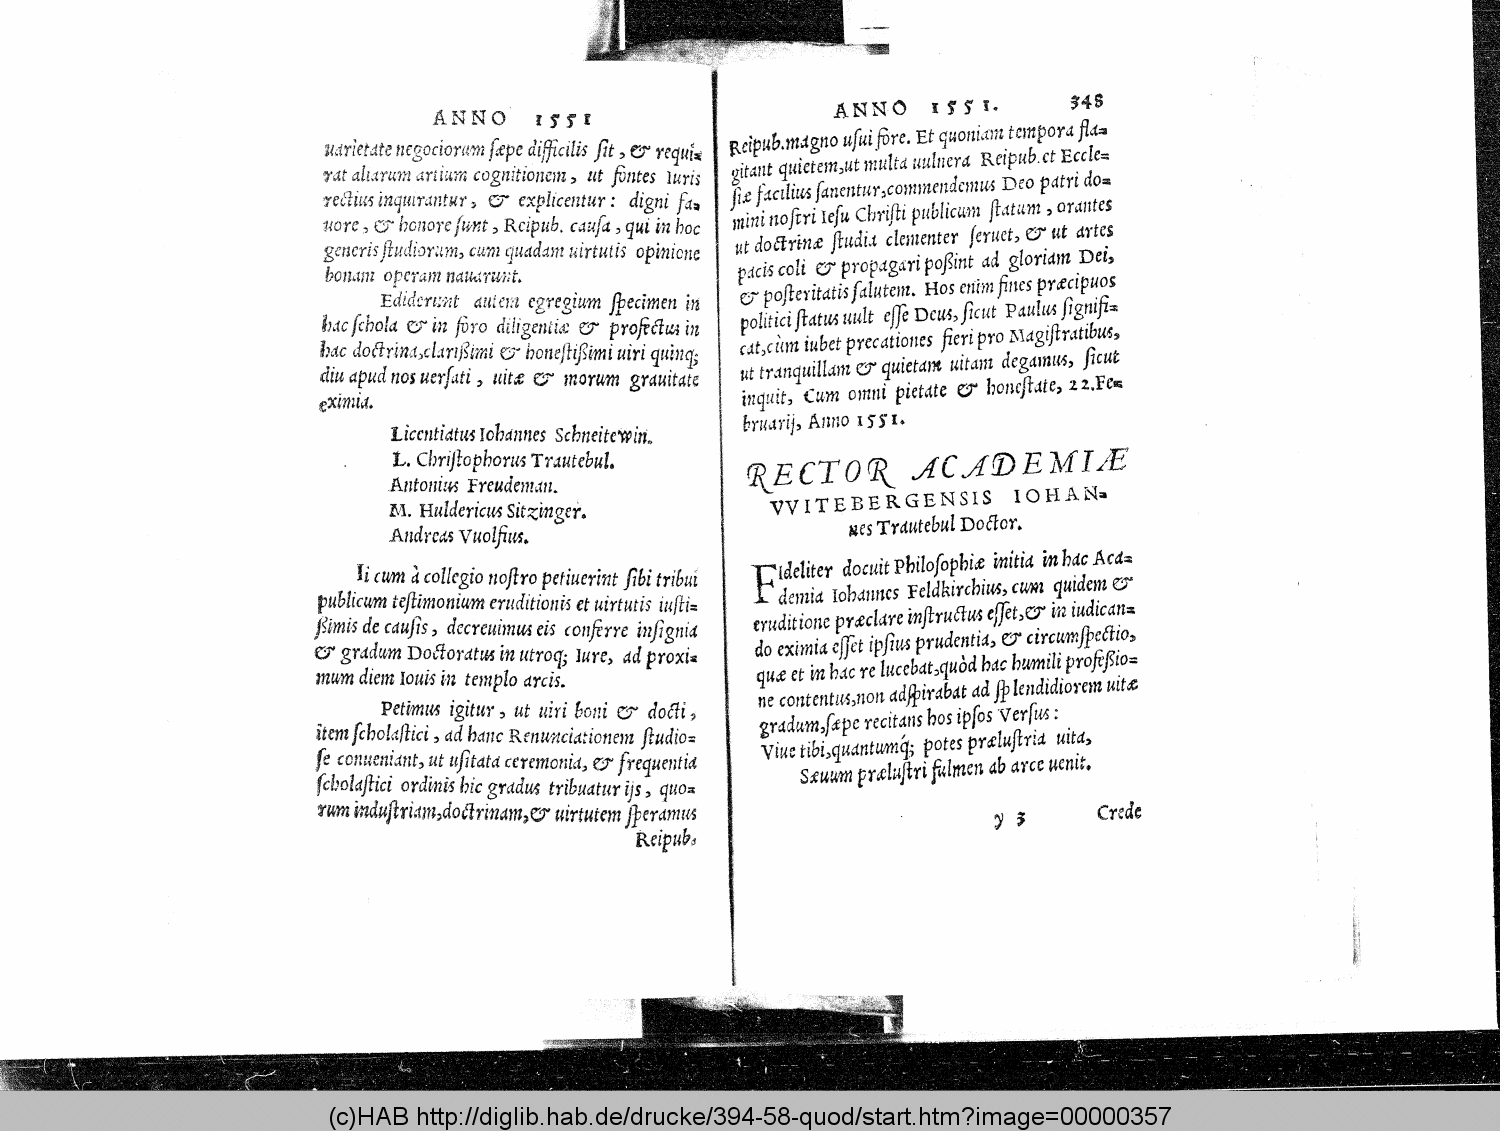 ANNO 1551
uarietate negociorum sæpe difficilis sit, & requi=
rat aliarum artium cognitionem, ut fontes Iuris
rectius inquirantur, & explicentur: digni fa=
uore, & honore sunt, Reipub. causa, qui in hoc
generis studiorum, cum quadam uirtutis opinione
bonam operam nauarunt.
Ediderunt autem egregium specimen in
hac schola & in foro diligentiæ & profectus in
hac doctrina, clarißimi & honestißimi uiri quinq;
diu apud nos uersati, uitæ & morum grauitate
eximia.
Licentiatus Iohannes Schneitewin.
L. Christophorus Trautebul.
Antonius Freudeman.
M. Huldericus Sitzinger.
Andreas Vuolfius.
Ii cum à collegio nostro petiuerint sibi tribui
publicum testimonium eruditionis et uirtutis iusti=
ßimis de causis, decreuimus eis conferre insignia
& gradum Doctoratus in utroq; Iure, ad proxi=
mum diem Iouis in templo arcis.
Petimus igitur, ut uiri boni & docti,
item scholastici, ad hanc Renunciationem studio=
se conueniant, ut usitata ceremonia, & frequentia
scholastici ordinis hic gradus tribuatur ijs, quo=
rum industriam, doctrinam, & uirtutem speramus
Reipub.
ANNO 1551. 348
Reipub. magno usui fore. Et quoniam tempora fla=
gitant quietem, ut multa uulnera Reipub. et Eccle=
siæ facilius sanentur, commendemus Deo patri do=
mini nostri Iesu Christi publicum statum, orantes
ut doctrinæ studia clementer seruet, & ut artes
pacis coli & propagari poßint ad gloriam Dei,
& posteritatis salutem. Hos enim fines præcipuos
politici status uult esse Deus, sicut Paulus signifi=
cat, cùm iubet precationes fieri pro Magistratibus,
ut tranquillam & quietam uitam degamus, sicut
inquit, Cum omni pietate & honestate, 22. Fe=
bruarij, Anno 1551.
RECTOR ACADEMIÆ
VVITEBERGENSIS IOHAN=
nes Trautebul Doctor.
Fideliter docuit Philosophiæ initia in hac Aca=
demia Iohannes Feldkirchius, cum quidem &
eruditione præclare instructus esset, & in iudican=
do eximia esset ipsius prudentia, & circumspectio,
quæ et in hac re lucebat, quòd hac humili profeßio=
ne contentus, non adspirabat ad splendidiorem uitæ
gradum, sæpe recitans hos ipsos Versus:
Viue tibi, quantumq́; potes prælustria uita,
Sæuum prælustri fulmen ab arce uenit.
y 3 Crede
(c)HAB http://diglib.hab.de/drucke/394-58-quod/start.htm?image=00000357